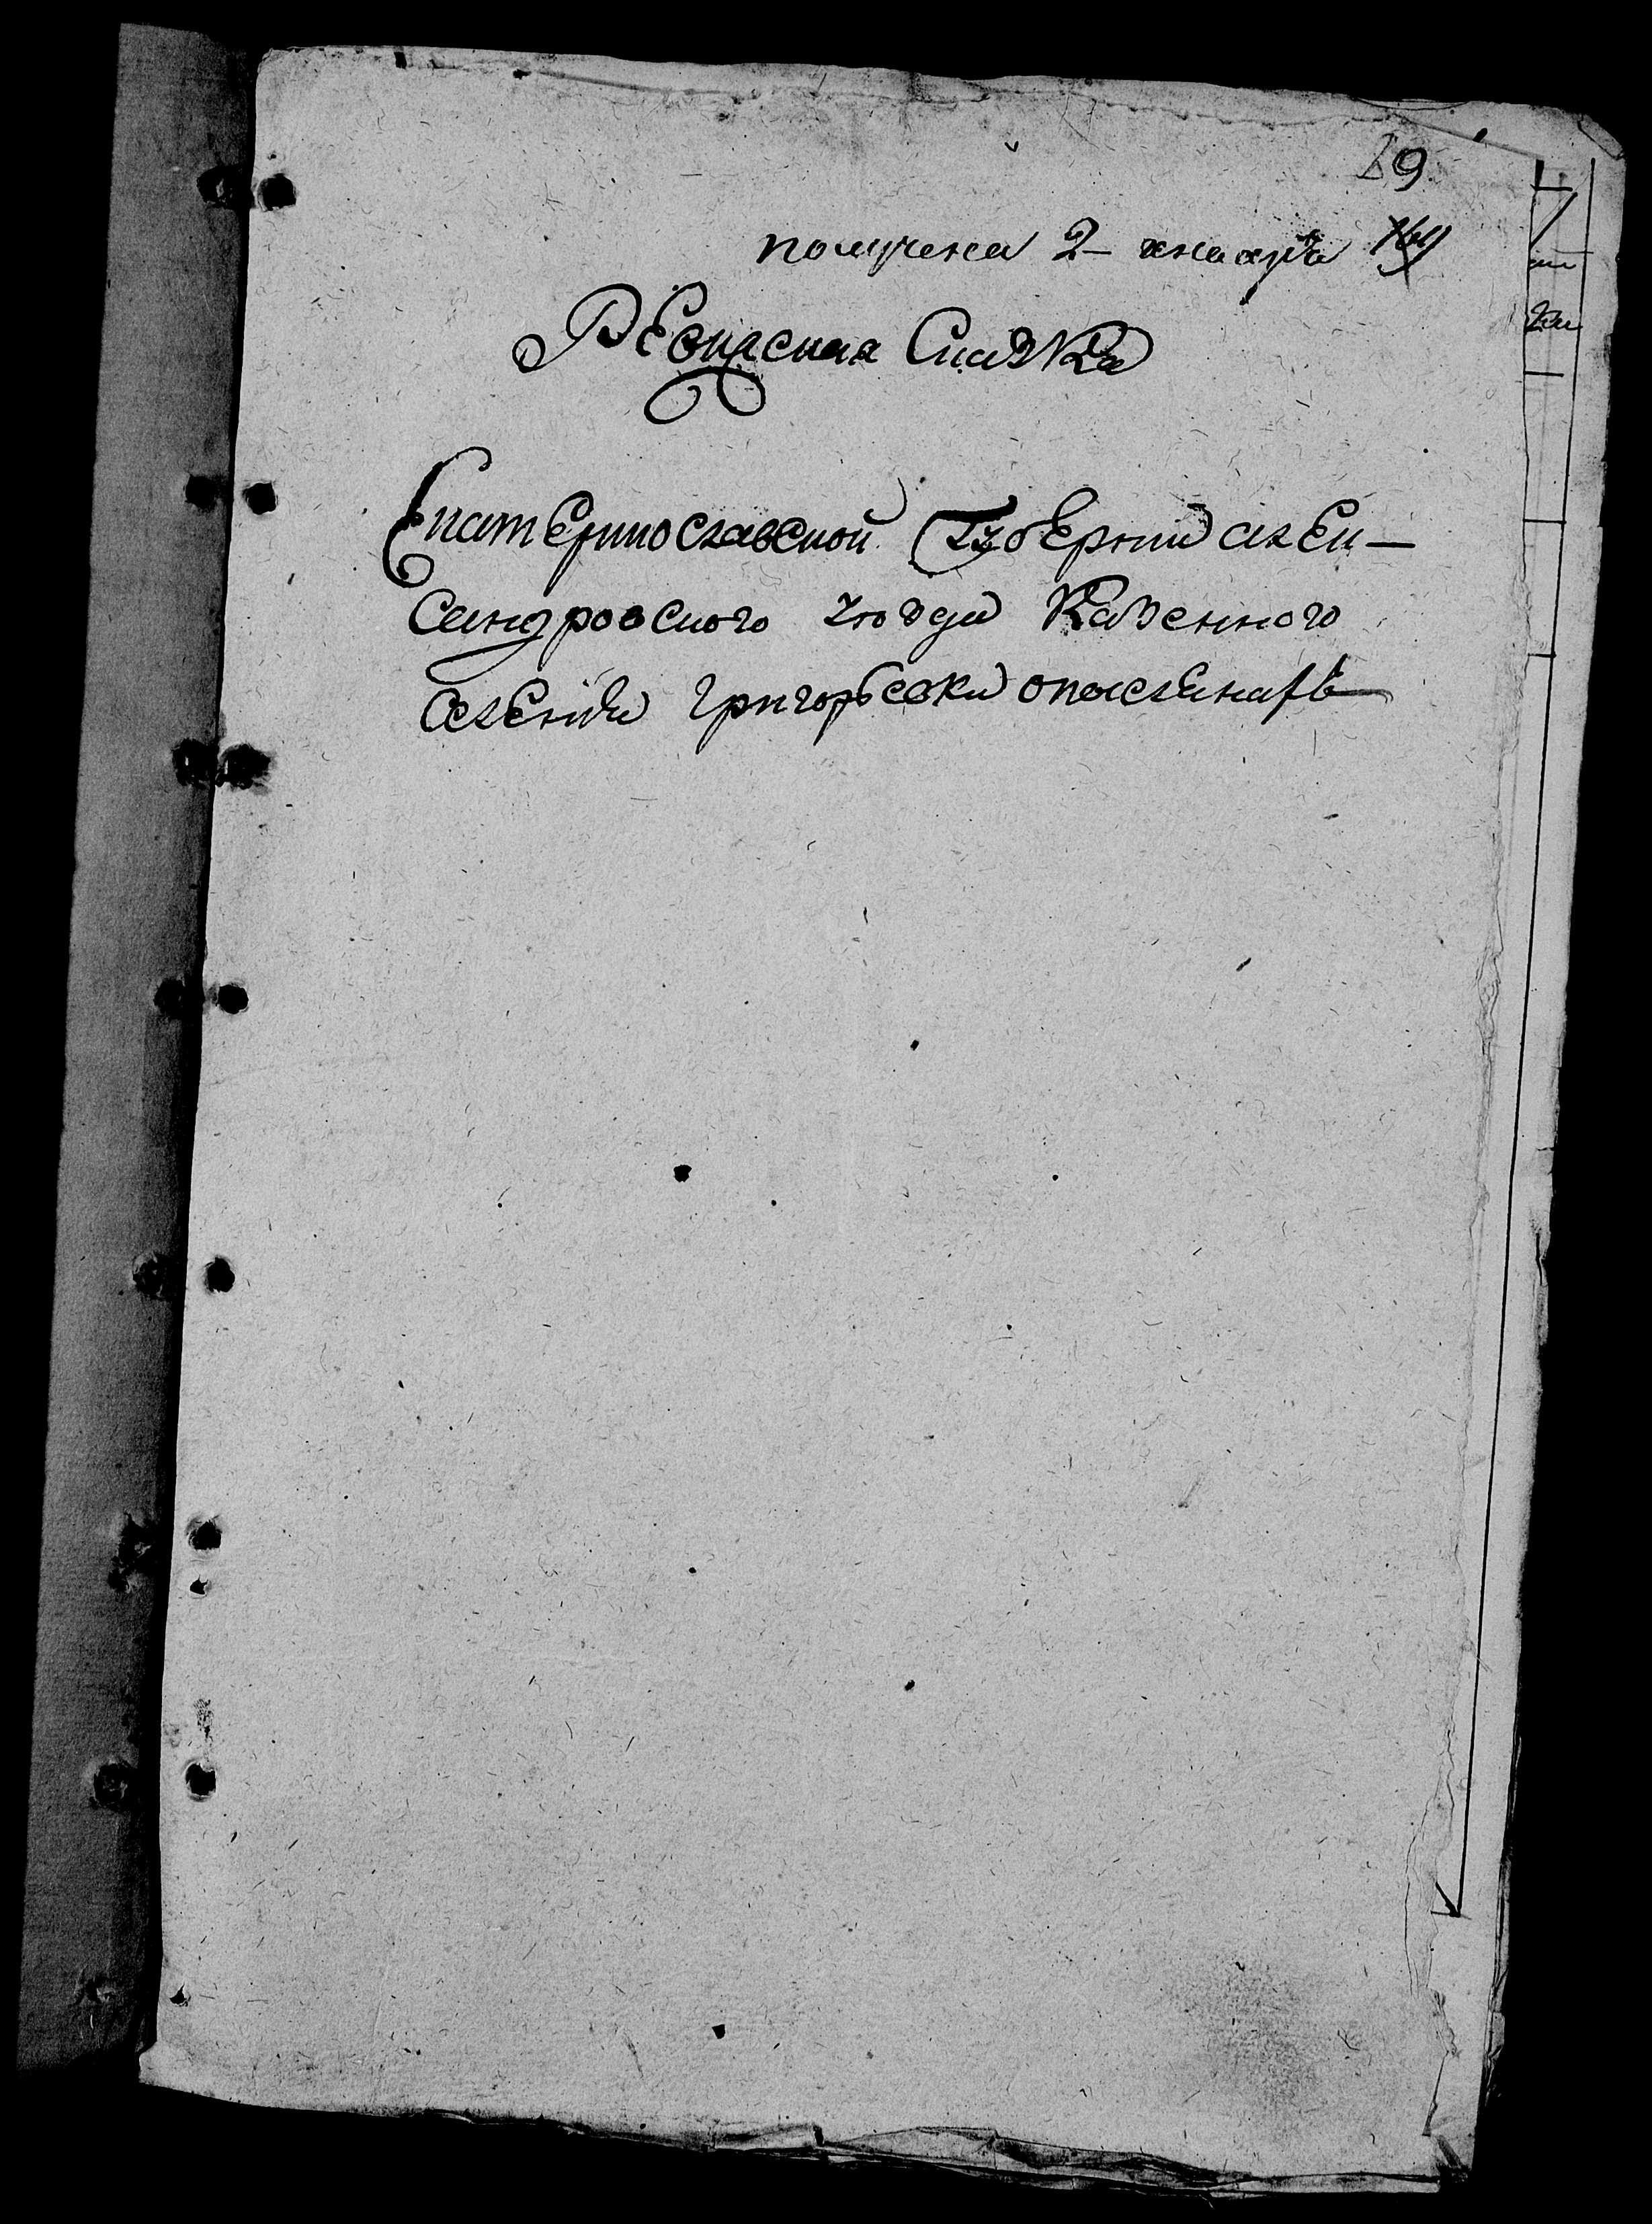 9
получена 2 генваря
Ревизская Сказка
Екатеринославской Губернии алек-
сандровского уезда Казенного
селения григорьевки о поселянахъ